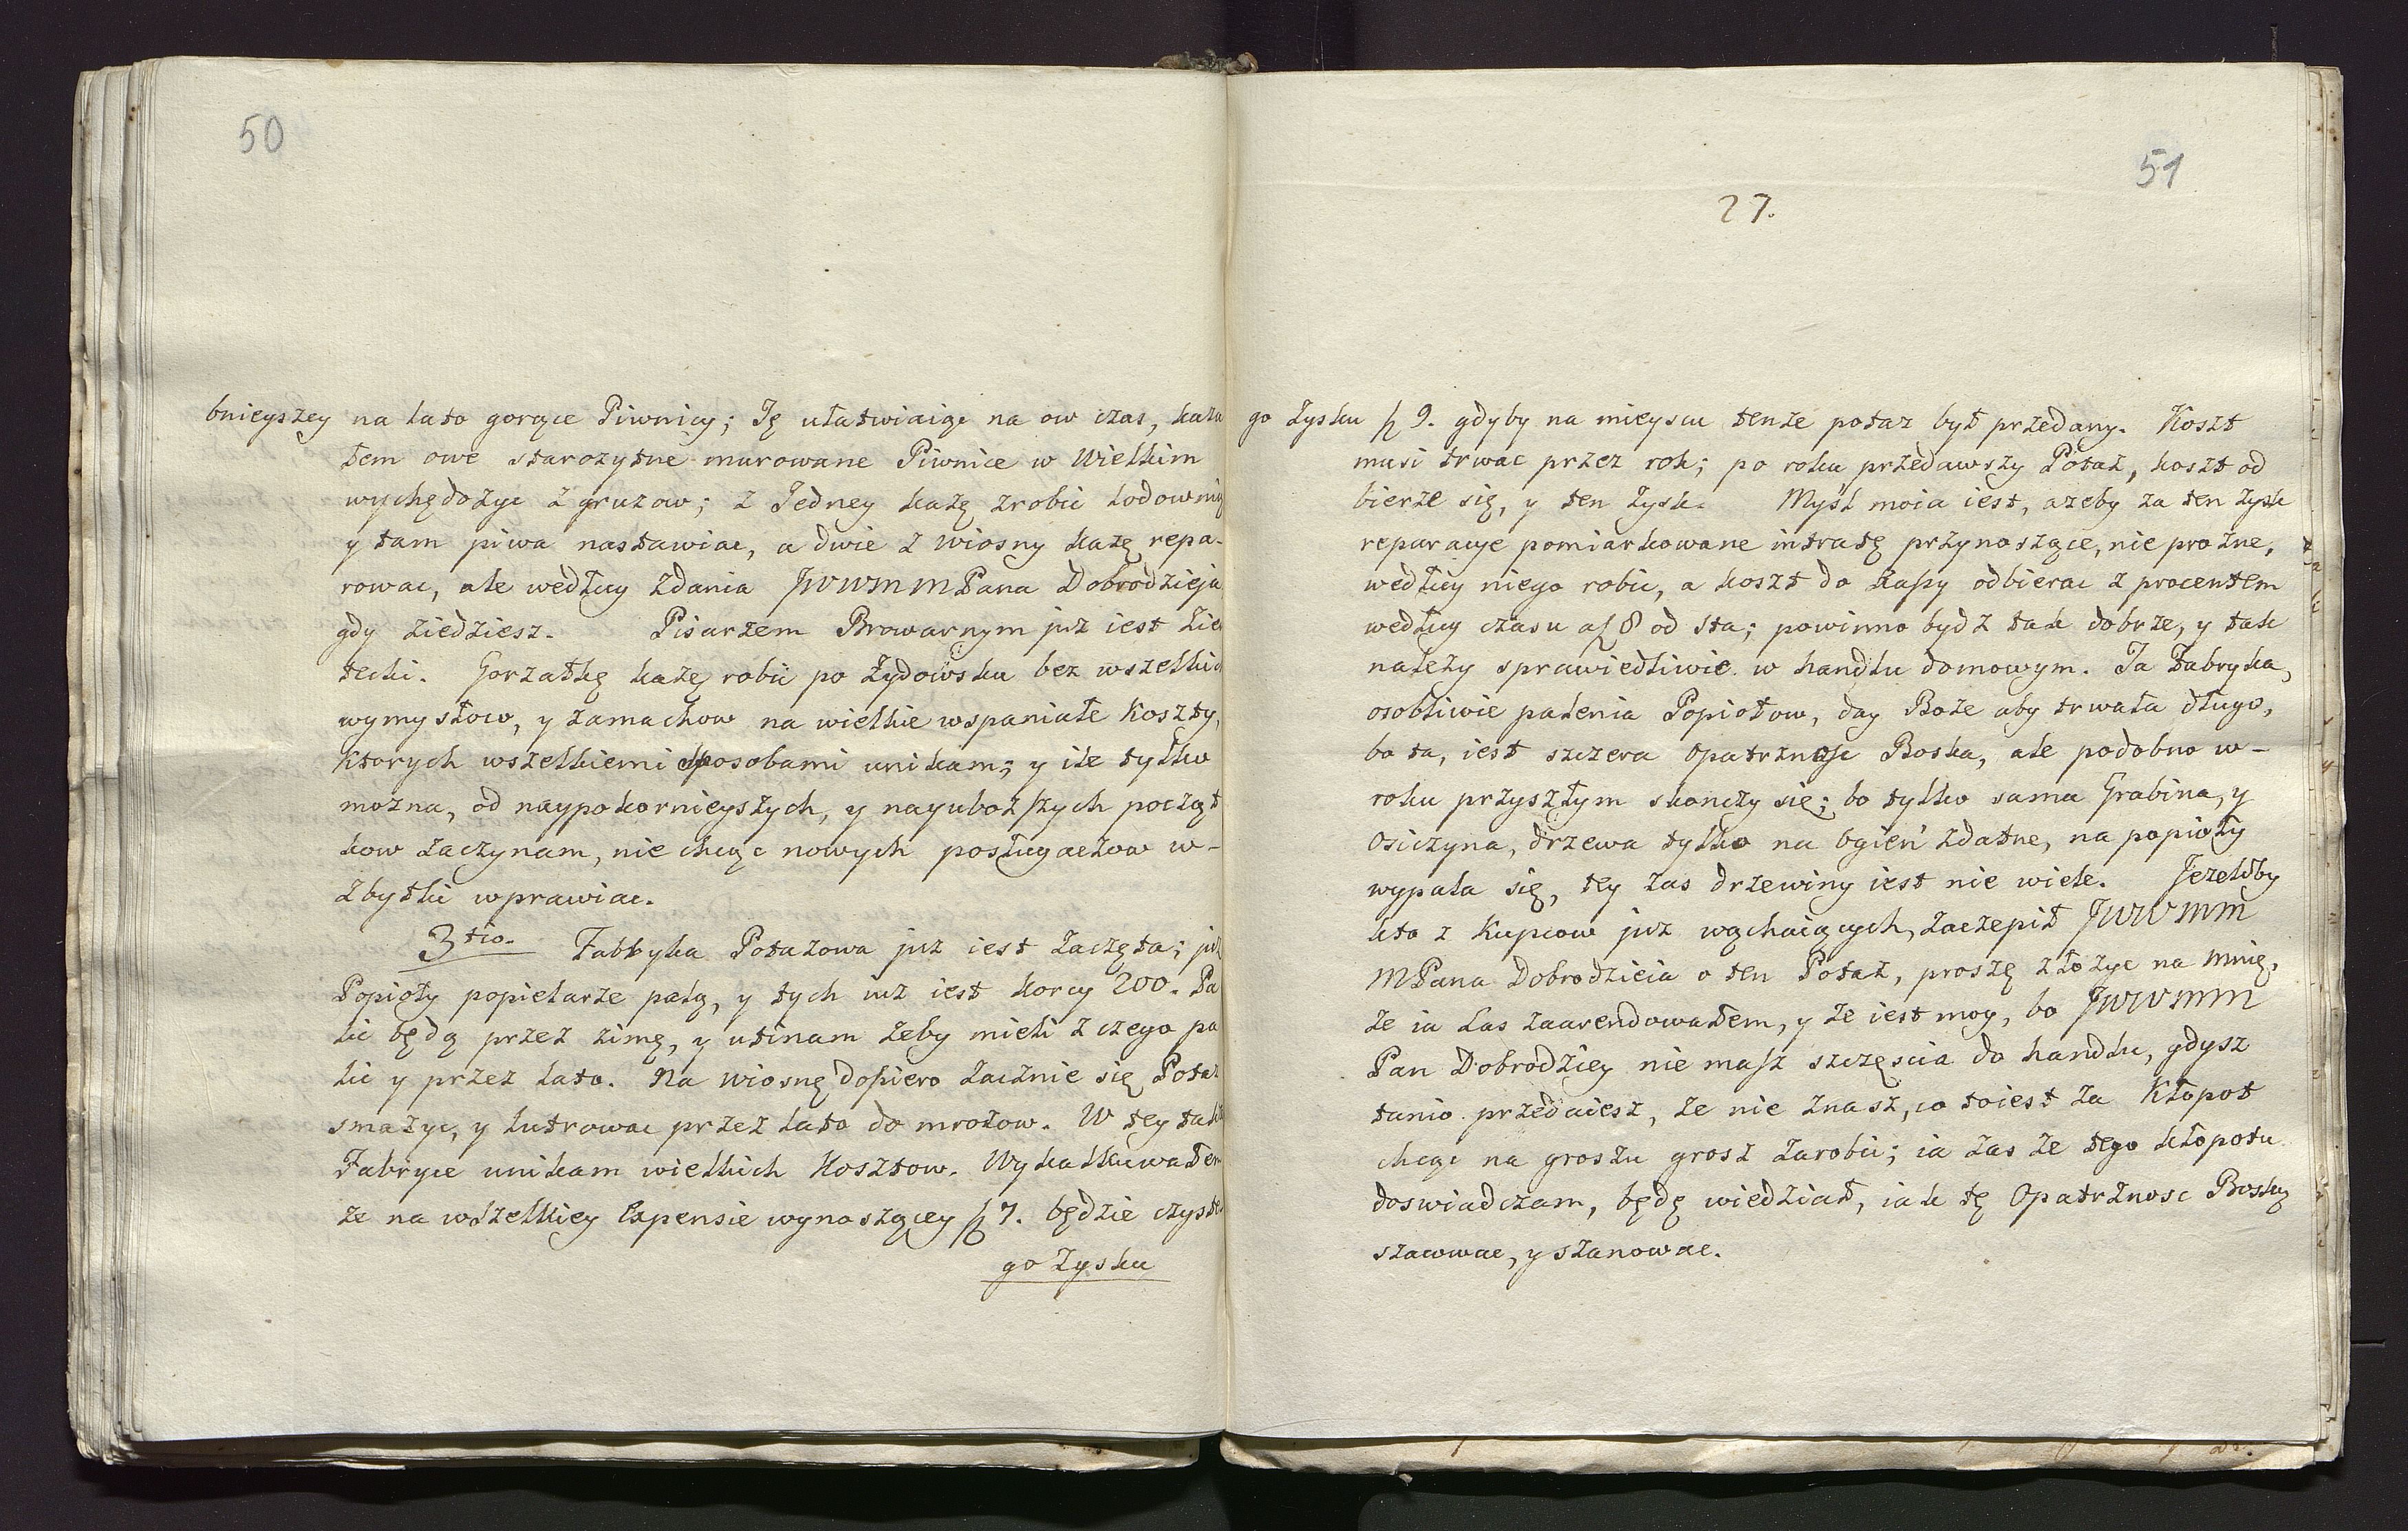 50
bnieyszey na lato gorące Piwnicy; Tę ułatwiaiąc na ow czas, kaza
łem owe starozytne murowane Piwnice w Wielkim
wychędożyc z gruzow; z Jedney każę zrobic lodownię
y tam piwa nastawiac, a dwie z wiosny każę repa-
rowac, ale według zdania JWWMMPana Dobrodzieja
gdy ziedziesz. Pisarzem Browarnym juz iest
tecki. Gorzałkę każę robic po Żydowsku bez wszelkich
wymysłow, y zamachow na wielkie wspaniałe koszty,
ktorych wszelkiemi sposobami unikam; y ile tylko
mozna, od naypokornieyszych, y nayuboższych począt
kow zaczynam, nie chcąc nowych posługaczow w-
zbytki wprawiac.
3tio. Fabryka Potazowa juz iest zaczęta; juz
Popioły popielarze palą, y tych juz iest korcy 200. Pa
lic będą przez zimę, y utinam żeby mieli z czego pa
lic y przez lato. Na wiosnę dopiero zacznie się Potaz
smażyc, y lutrowac przez lato do mrozow. W tey także
Fabryce unikam wielkich Kosztow. Wykalkuwałem
że na wszelkiey Expensie wynoszącey # 7. będzie czyste
go zysku
51
27.
go zysku # 9. gdyby na mieyscu tenże potaz był przedany. Koszt
musi trwac przez rok; po roku przedawszy Potaż, koszt od
bierze się, y ten zysk. Mysl moia iest, azeby za ten zysk
reparacye pomiarkowane intratę przynoszące, nie prozne,
według niego robic, a koszt do Kassy odbierac z procentem
według czasu a 8 od sta; powinno bydz tak dobrze, y tak
należy sprawiedliwie w handlu domowym. Ta Fabryka,
osobliwie palenia Popiołow, day Boże aby trwała długo,
bo ta, iest szczera Opatrznosc Boska, ale podobno w-
roku przyszłym skonczy się; bo tylko sama Grabina, y
Osiczyna, drzewa tylko na ogień zdatne, na popioły
wypala się, tey zas drzewiny iest nie wiele. Jeżeliby
kto z Kupcow juz wąchaiących, zaczepił JWWMM
MPana Dobrodzieia o ten Potaż, proszę złożyc na mnie,
że ia Las zaarendowałem, y że iest moy, bo JWWMM
Pan Dobrodziey nie masz szczęscia do handlu, gdysz
tanio przedaiesz, że nie znasz, co toiest za Kłopot
chcąc na groszu grosz zarobic; ia zas że tego kłopotu
doswiadczam, będę wiedział, iak tę Opatrznosc Boską
szacowac, y szanowac.